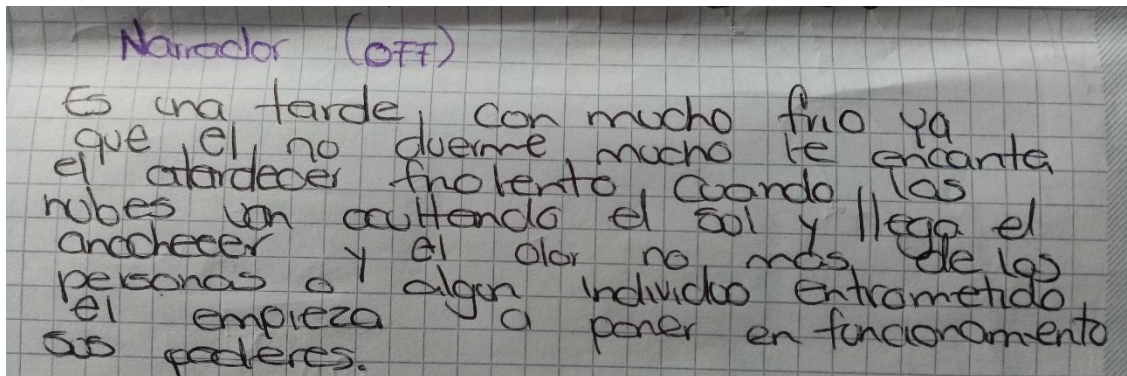 Narrador (OFF)
Es una tarde, con mucho frio ya
que el, no duerme, mucho le encanta,
el atardecer friolento, cuando, las
nubes van ocultando el sol y llega el
anochecer y el olor no más, de las
personas o algun individuo entrometido,
el empieza a poner en funcionamento
sus poderes.